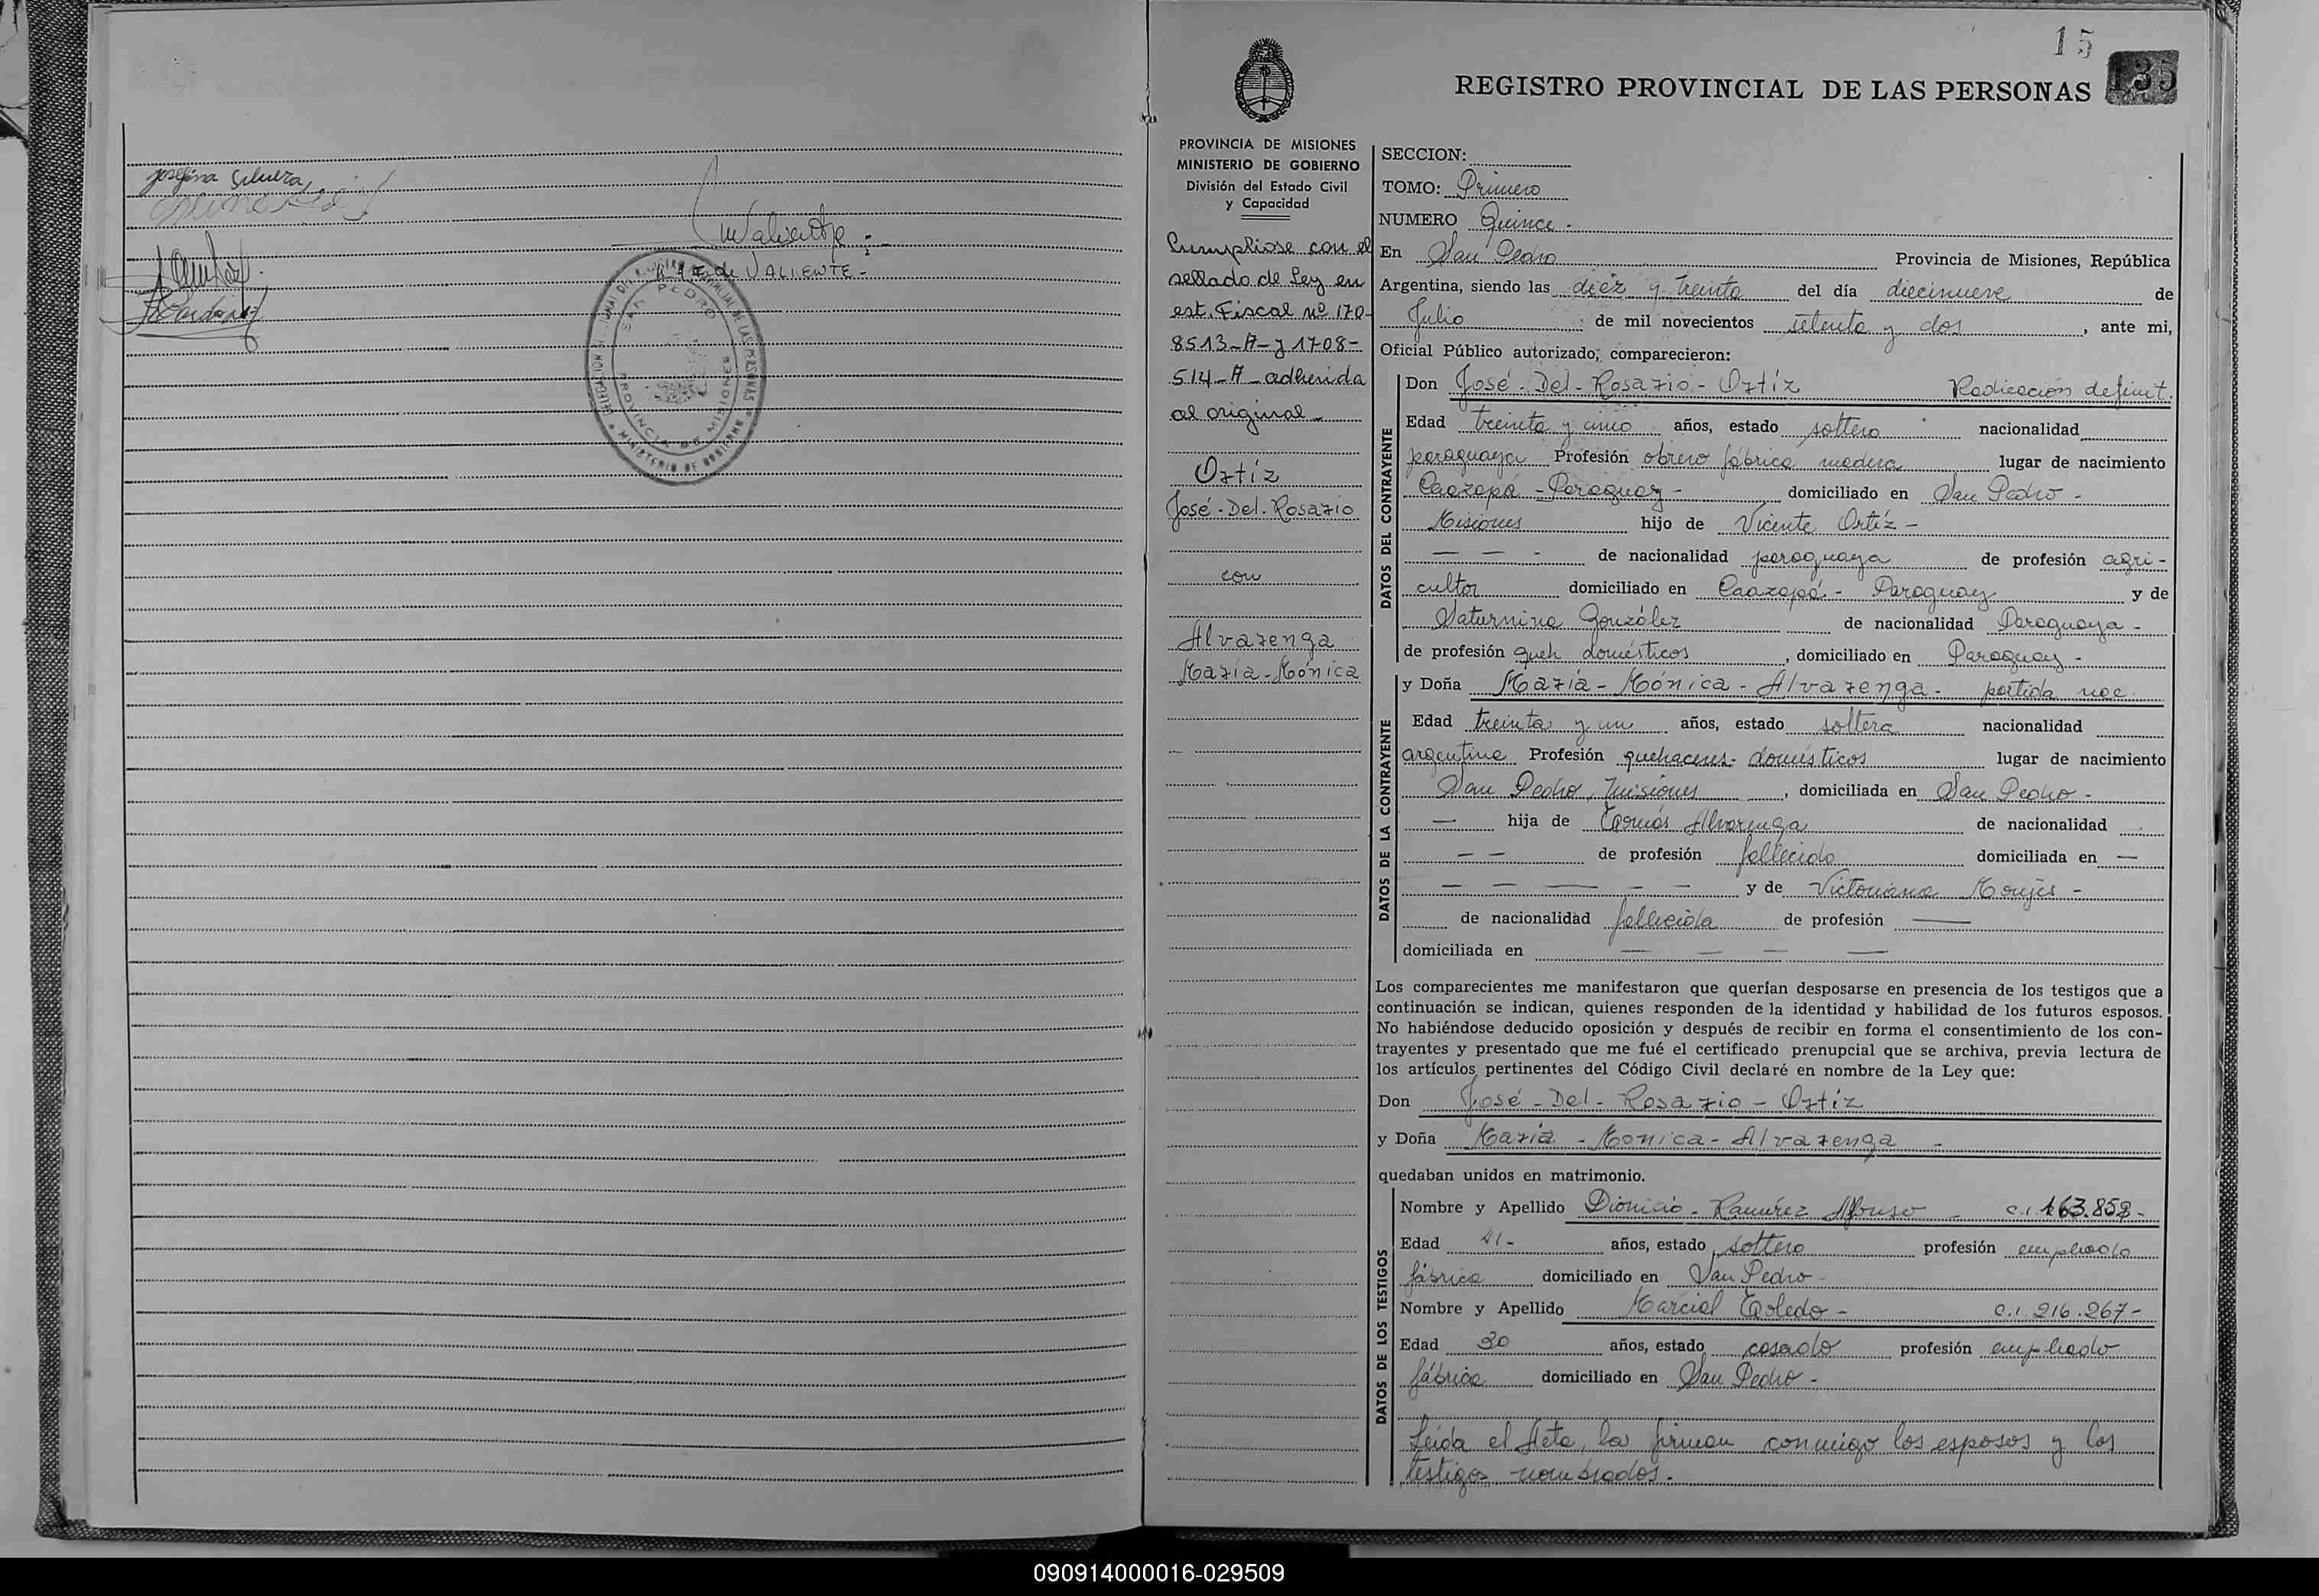 Josefina Silvera
Mvaliente
de VALIENTE -
SAN PEDRO
PROVINCIA DE MISIONES
MINISTERIO DE GOBIERNO
15
135
REGISTRO PROVINCIAL DE LAS PERSONAS
PROVINCIA DE MISIONES
MINISTERIO DE GOBIERNO
División del Estado Civil
y Capacidad
Cumpliose con el
sellado de Ley en
est. Fiscal nº 170-
8513-A- y 1708-
514-A- adherida
al original-
Ortíz
José-Del-Rosario
con
Alvarenga
María-Mónica
SECCION:
TOMO: Primero
NUMERO Quince -
En San Pedro Provincia de Misiones, República
Argentina, siendo las diez y treinta del día diecinueve de
Julio de mil novecientos setenta y dos, ante mi,
Oficial Público autorizado, comparecieron:
DATOS DEL CONTRAYENTE
Don José-Del-Rosario-Ortíz Radicación definit.
Edad treinta y uno años, estado soltero nacionalidad
paraguaya Profesión obrero fábrica madera lugar de nacimiento
Caazapá - Paraguay - domiciliado en San Pedro -
Misiones hijo de Vicente Ortíz -
— — - de nacionalidad paraguaya de profesión agri-
cultor domiciliado en Caazapá - Paraguay y de
Saturnina González de nacionalidad Paraguaya -
de profesión queh. domésticos, domiciliado en Paraguay -
DATOS DE LA CONTRAYENTE
y Doña María-Mónica-Alvarenga- partida nac.
Edad treinta y un años, estado soltera nacionalidad
argentina Profesión quehaceres-domésticos lugar de nacimiento
San Pedro, Misiones, domiciliada en San Pedro -
— hija de Tomás Alvarenga de nacionalidad
— — de profesión fallecido domiciliada en —
— — — - - y de Victoriana Monjes -
de nacionalidad fallecida de profesión —
domiciliada en — — — —
Los comparecientes me manifestaron que querían desposarse en presencia de los testigos que a
continuación se indican, quienes responden de la identidad y habilidad de los futuros esposos.
No habiéndose deducido oposición y después de recibir en forma el consentimiento de los con-
trayentes y presentado que me fué el certificado prenupcial que se archiva, previa lectura de
los artículos pertinentes del Código Civil declaré en nombre de la Ley que:
Don José-Del-Rosario-Ortíz
y Doña María-Monica-Alvarenga -
quedaban unidos en matrimonio.
DATOS DE LOS TESTIGOS
Nombre y Apellido Dionicio-Ramírez Alfonso - c.i. 163.852-
Edad 41- años, estado soltero profesión empleado
fábrica domiciliado en San Pedro -
Nombre y Apellido Marcial Toledo - c.i. 216.267-
Edad 30 años, estado casado profesión empleado
fábrica domiciliado en San Pedro -
Leída el Acta, la firman conmigo los esposos y los
testigos nombrados.-
090914000016-029509